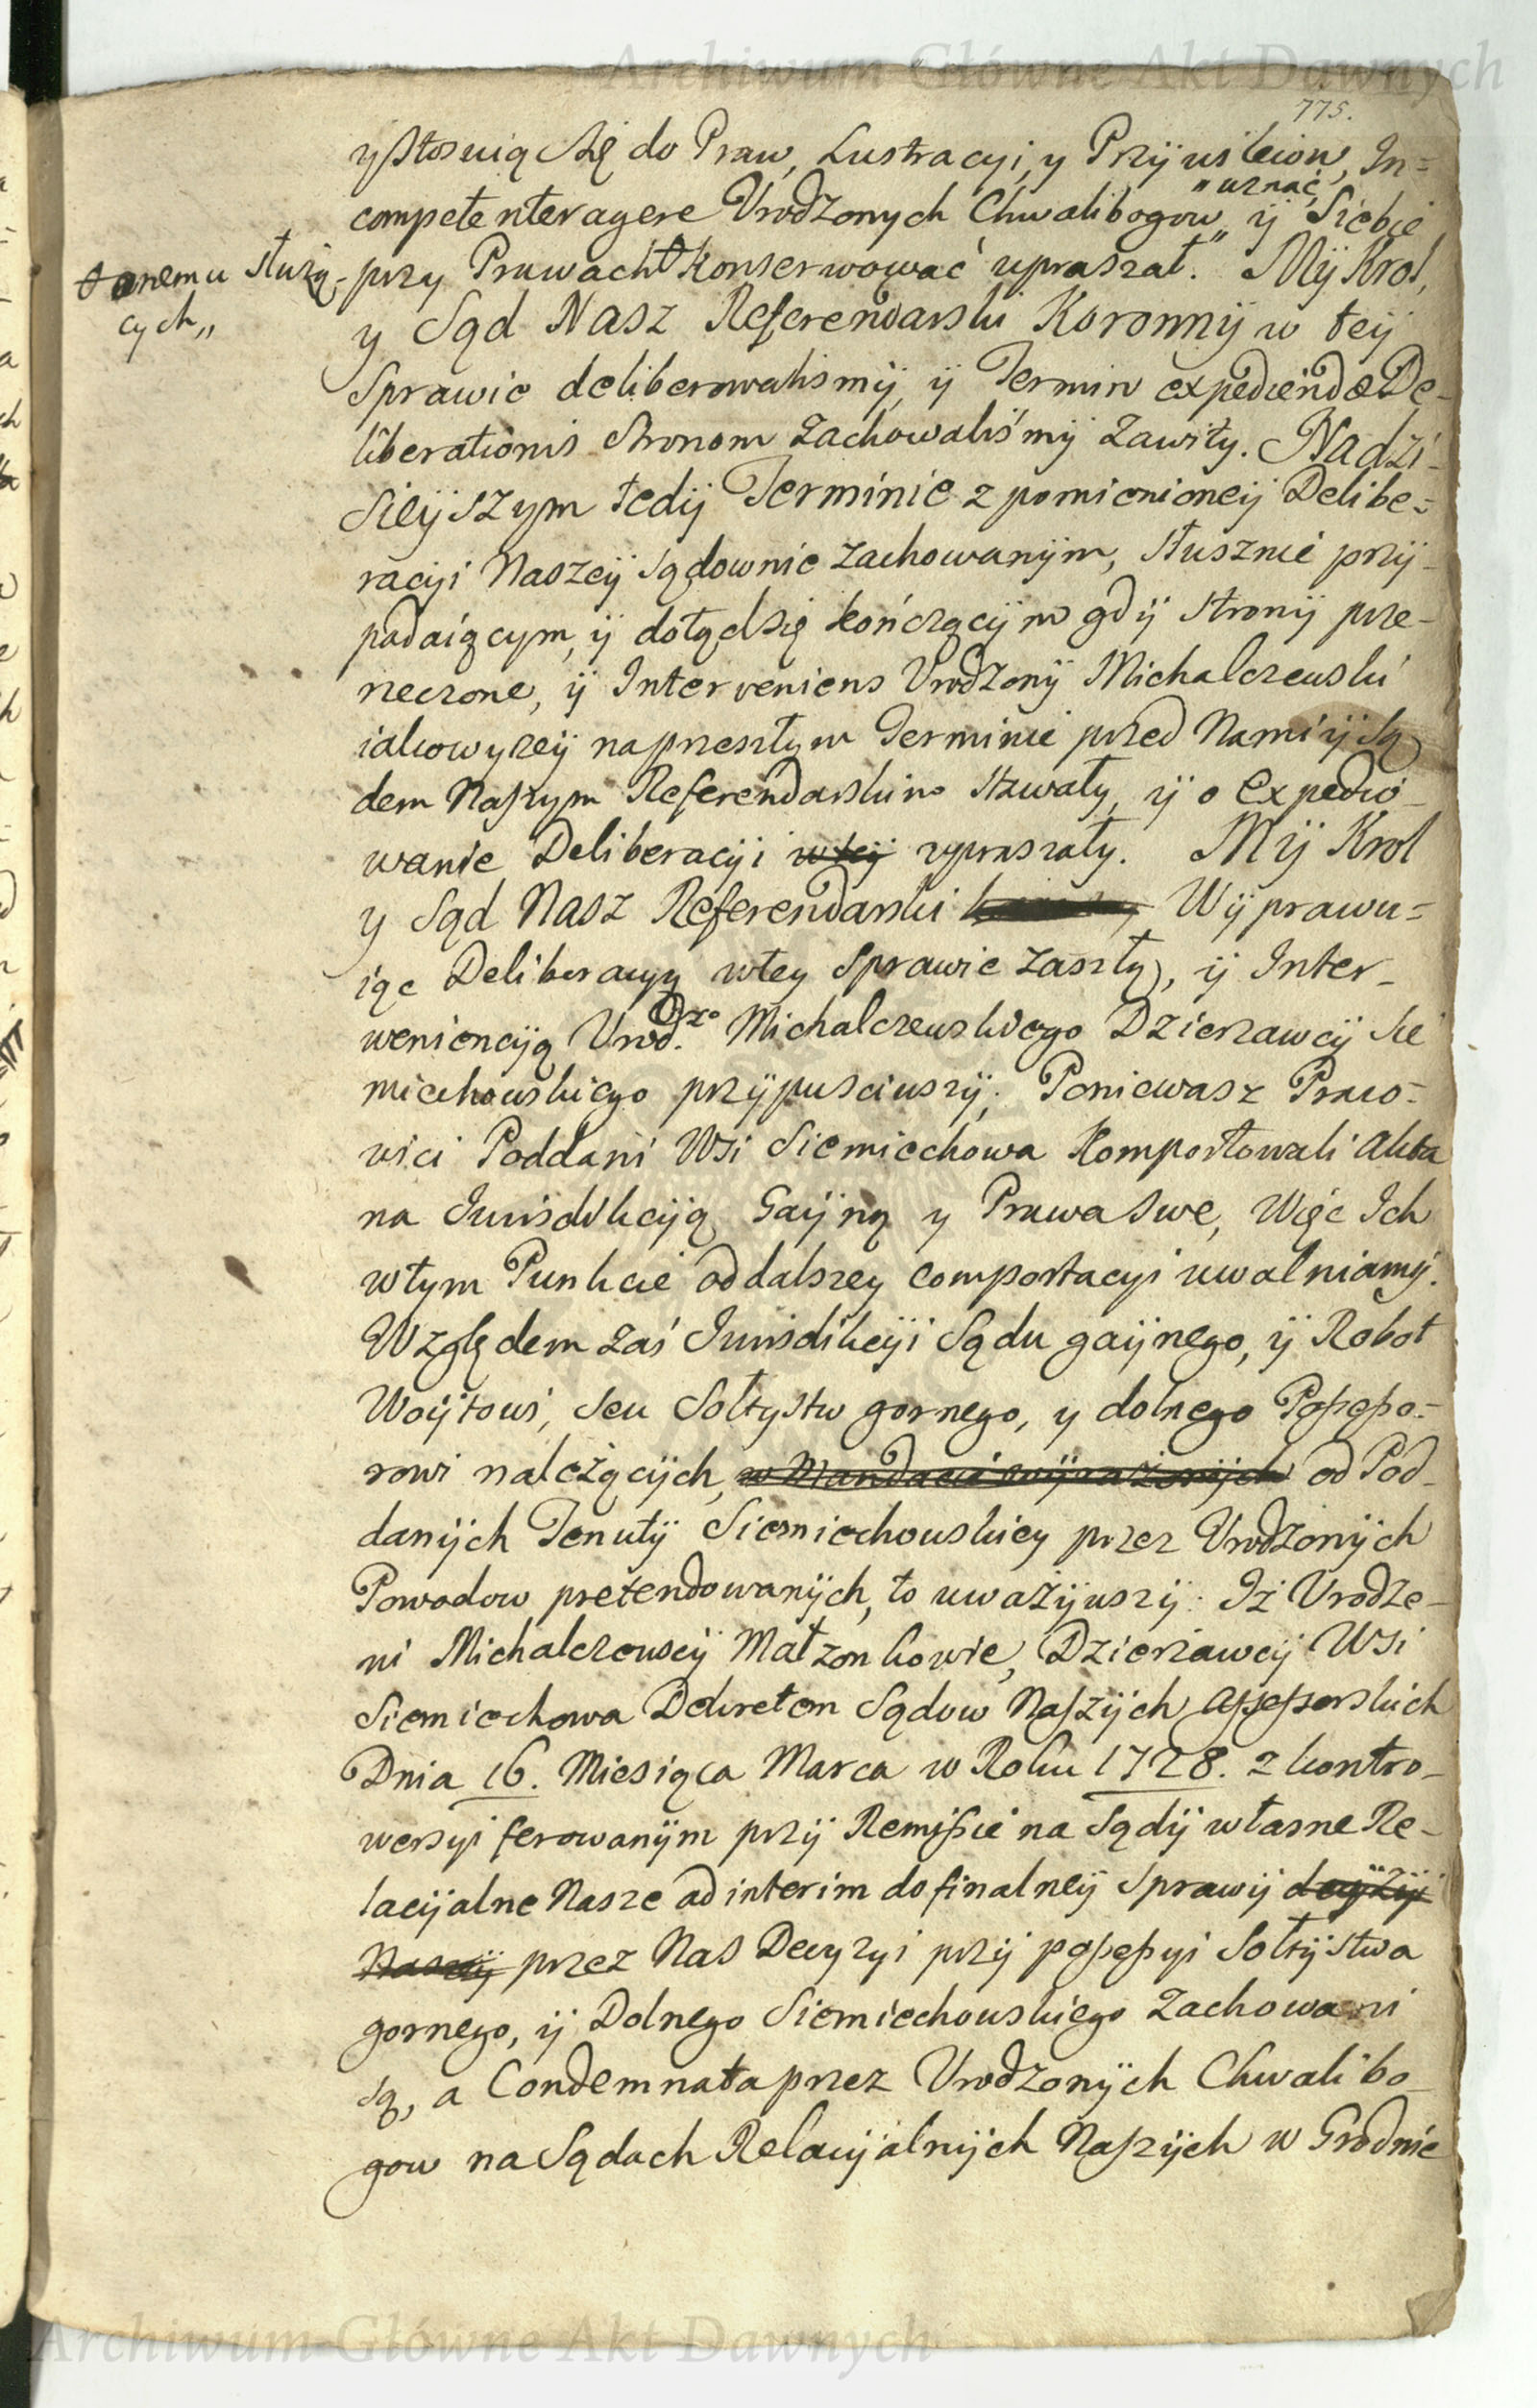 Archiwum Główne Akt Dawnych
775.
y stosuiąc się do Praw, Lustracyi, y Przywileiow, In=
competenter agere Vrodzonych Chwalibogow „uznać„ ÿ Siebie
przy Prawach konserwować upraszał. Mÿ Krol,
onemu służą-
cych„
y Sąd Nasz Referendarski Koronnÿ w teÿ
Sprawie deliberowalismÿ, ÿ Termin expediendæ De-
liberationis Stronom zachowaliśmÿ zawitÿ. Na dzi-
sieÿszym tedÿ Terminie z pomienioneÿ Delibe=
racÿi Naszeÿ sądownie zachowanÿm, słusznie przÿ-
padaiącym, ÿ dotąd się kończącÿm gdÿ stronÿ prze-
rzeczone, ÿ Interveniens Vrodzonÿ Michalczewski
iako wyzeÿ na przeszłym Terminie przed Nami ÿ Są
dem Naszym Referendarskim stawały, ÿ o Expedio-
wanie Deliberacÿi w teÿ upraszały. Mÿ Krol
y Sąd Nasz Referendarski Wÿprawu=
iąc Deliberacyą w tey Sprawie zaszłą, ÿ Inter-
weniencÿą Vrodz.º Michalczewskiego Dzierzawcÿ Sie
miechowskiego przÿpusciwszÿ; Poniewasz Praco-
wici Poddani Wsi Siemiechowa Komportowali Akta
na Jurisdikcÿą Gaÿną y Prawa swe, Więc Ich
w tym Punkcie od dalszey comportacyi uwalniamÿ.
Względem zaś Jurisdikcÿi Sądu gaÿnego, ÿ Robot
Woÿtowi, seu Sołtystw gornego, y dolnego Possesso=
rowi należącÿch, w Mandacie wÿrażonÿch od Pod-
danÿch Tenutÿ Siemiechowskiey przez Vrodzonÿch
Powodow pretendowanÿch, to uważÿwszÿ: Iż Vrodze-
ni Michalczewscÿ Małzonkowie, Dzierzawcÿ Wsi
Siemiechowa Dekretem Sądow Naszÿch Assessorskich
Dnia 16. Miesiąca Marca w Roku 1728. z kontro-
wersyi ferowanÿm przÿ Remissie na Sądÿ własne Re-
lacÿalne Nasze ad interim do finalneÿ Sprawÿ decÿzÿi
Naszeÿ przez Nas Decyzyi przÿ possessyi Sołtÿstwa
gornego, ÿ Dolnego Siemiechowskiego zachowani
są, a Condemnata przez Vrodzonÿch Chwalibo-
gow na Sądach Relacÿalnÿch Naszÿch w Grodnie
Archiwum Główne Akt Dawnych